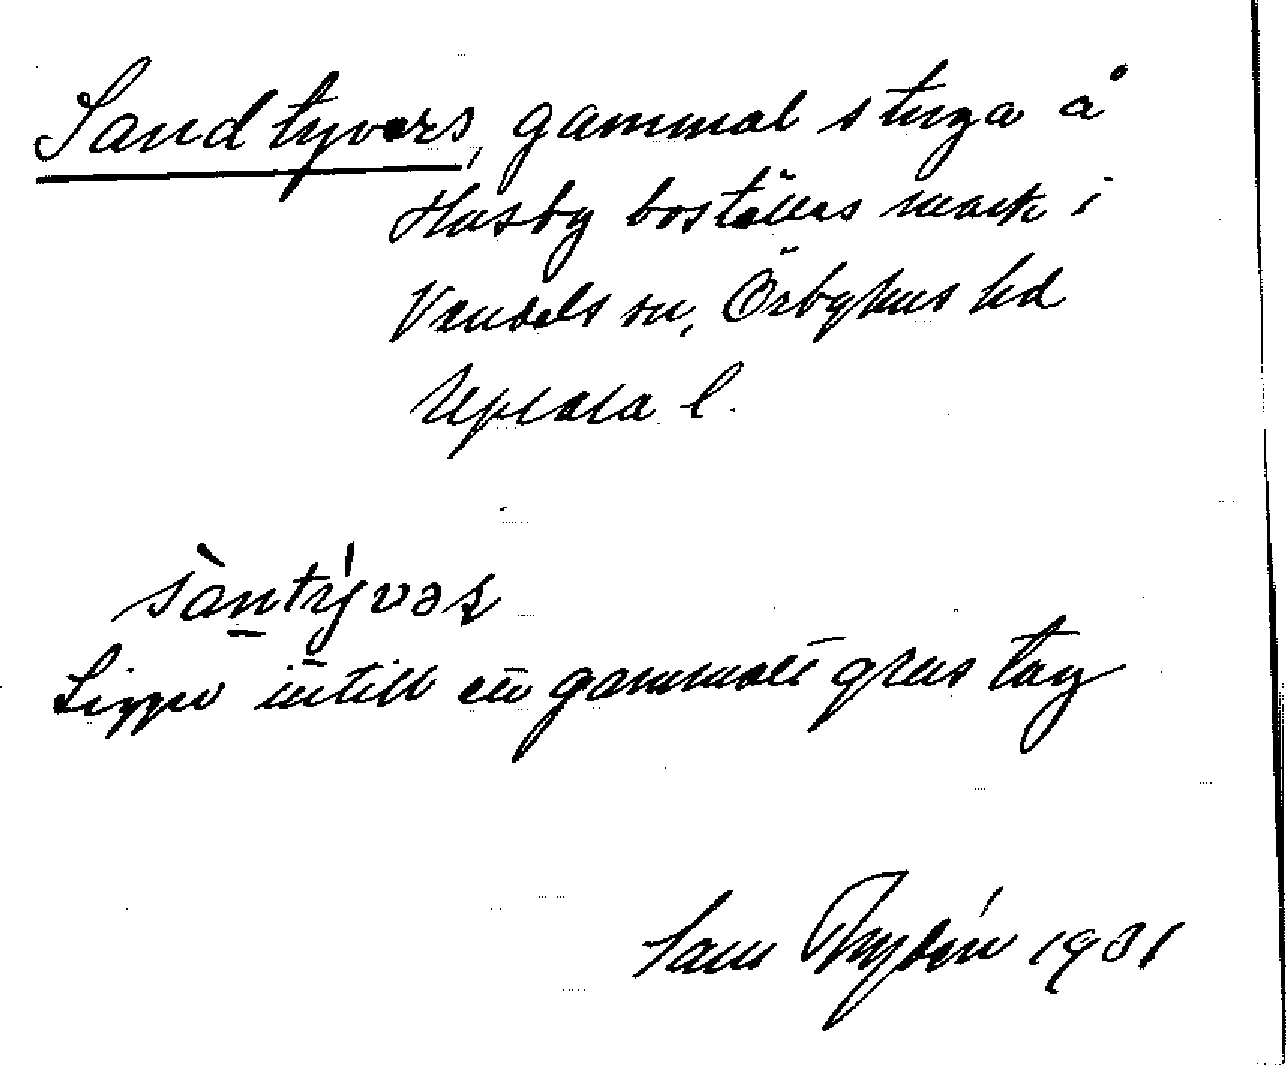 Sandtyvers, gammal stuga å
Husby boställes mark i
Vendels sn, Örbyhus hd
Upsala l.
sàntývəʂ
Ligger intill ett gammalt grustag
Sam Rydén 1931